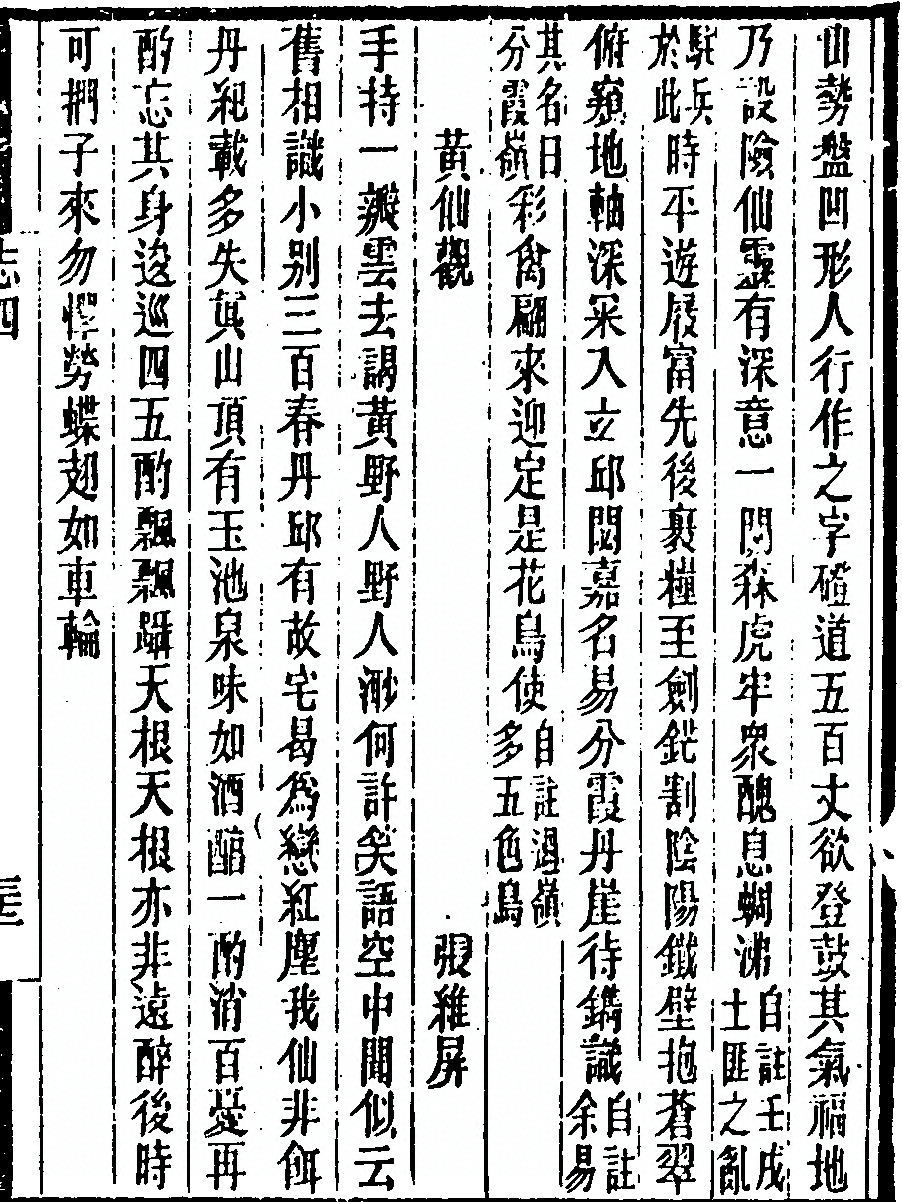 山勢盤凹形人行作之字磴道五百丈欲登鼓其氣福地
乃設險仙靈有深意一門森虎牢眾醜息蜩沸自註壬戌土匪之亂
駐兵於此時平遊屐富先後裹糧至劍鋩割陰陽鐵壁抱蒼翠
俯窺地軸深罙入立邱閔嘉名易分霞丹崖待鐫識自註余易
其名曰分霞嶺彩禽翩來迎定是花鳥使自註過嶺多五色鳥
黃仙觀 張維屏
手持一瓣雲去謁黃野人野人渺何許矣語空中聞似云
舊相識小別三百春丹邱有故宅曷為戀紅塵我仙非餌
丹祀載多失真山頂有玉池泉味如酒醅一酌消百憂再
酌忘其身逡巡四五酌飄飄躡天根天根亦非遠醉後時
可捫子來勿憚勞蝶翅如車輪
志四